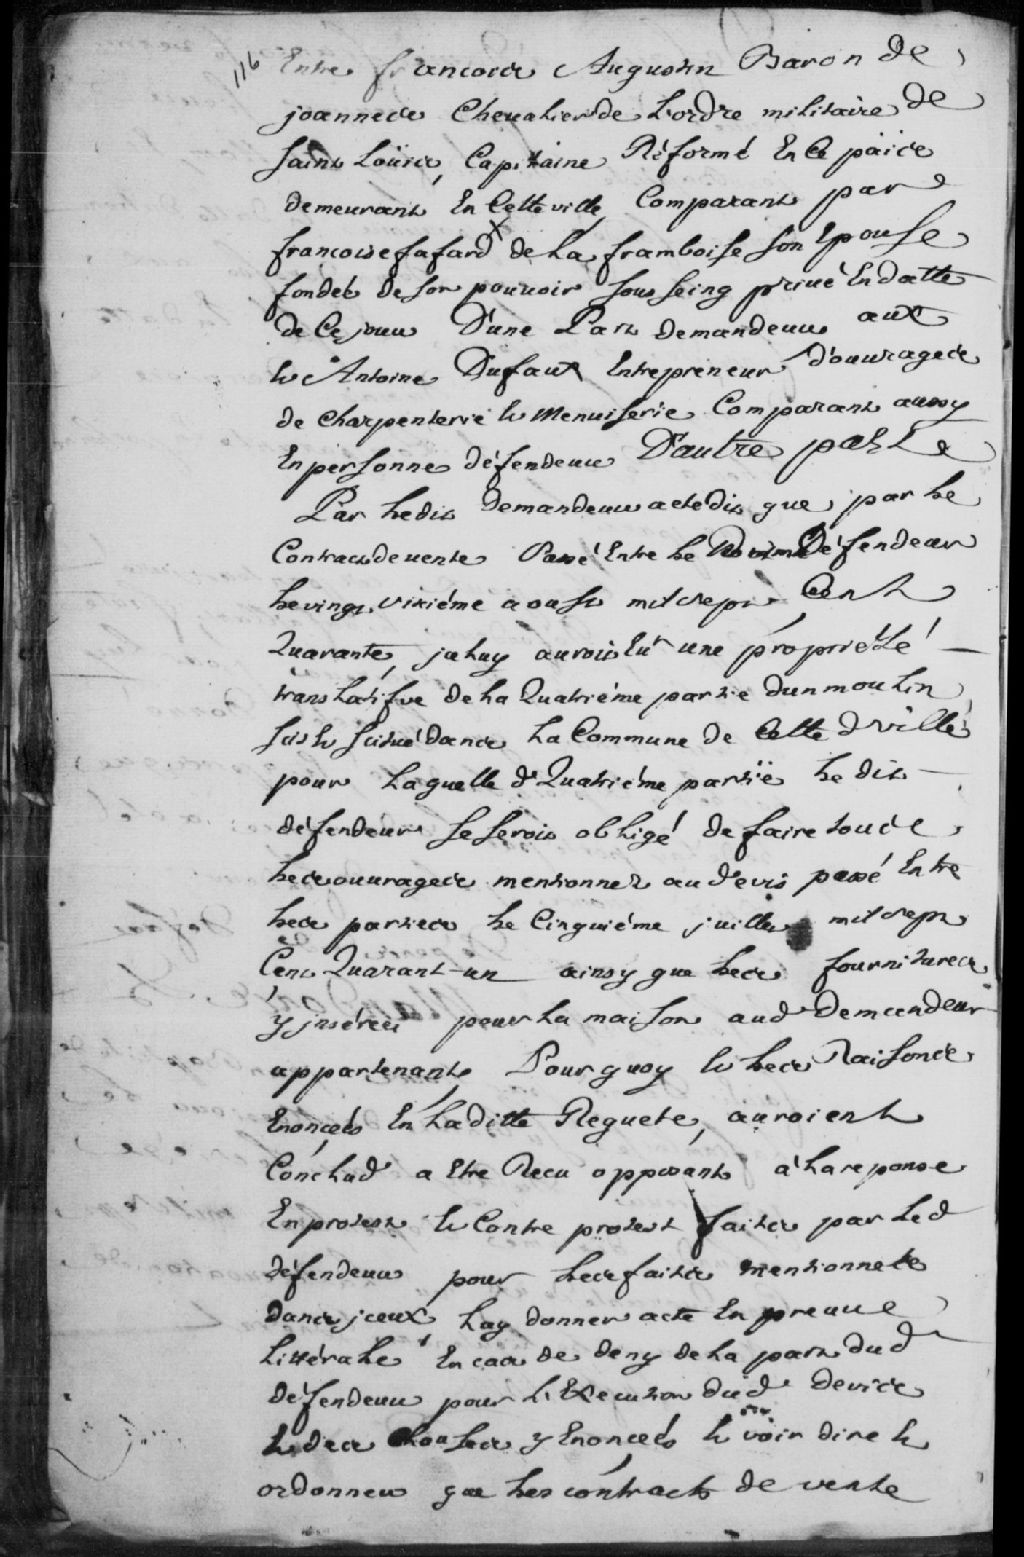 116 Entre francois Augustin Baron de
joannes Chevalier de L'ordre militaire de
Saint Loüis, Capitaine Réformé En Ce païs
demeurant En Cette ville, Comparant par
francoise fafard de La framboise Son Epouse
fondée de Son pouvoir Sous Seing privé En datte
de Ce jour D'une Part Demandeur aux
Et Antoine Dufaux Entrepreneur D'ouvrages
de Charpenterie Et Menuiserie Comparant aussy
En personne défendeur D'autre part
Par Ledit Demandeur a eté dit que, par Le
Contract de vente Passé Entre Le Défendeur
Le vingt sixiéme aoust mil sept Cent
Quarante, jceluy auroit Eü une proprieté
translatifve de La Quatriéme partie d'un moulin
Sis Et Scitué dans La Commune de Cette d ville
pour Laquelle de Quatriéme partië Le dit
défendeur Se Seroit obligé de faire tous
Les ouvrages mentionnez au devis passé Entre
Les parties Le Cinquiéme juillet mil sept
Cent Quarant-un ainsy que Les fournitures
y jnsérées pour La maison aud Demandeur
appartenant, Pourquoy Et Les Raisons
Enoncées En Laditte Requete, auroient
Conclud a Etre Recu opposant à La reponse
En protest Et Contre protest faits par Led
défendeur pour Les faits mentionnés
dans jceux Luy donner acte En preuve
Littérale En cas de deny de La part dud
défendeur pour L'Execution dud devis
Et des Chouses y Enoncées Et voir dire Et
ordonner que Les contracts de vente